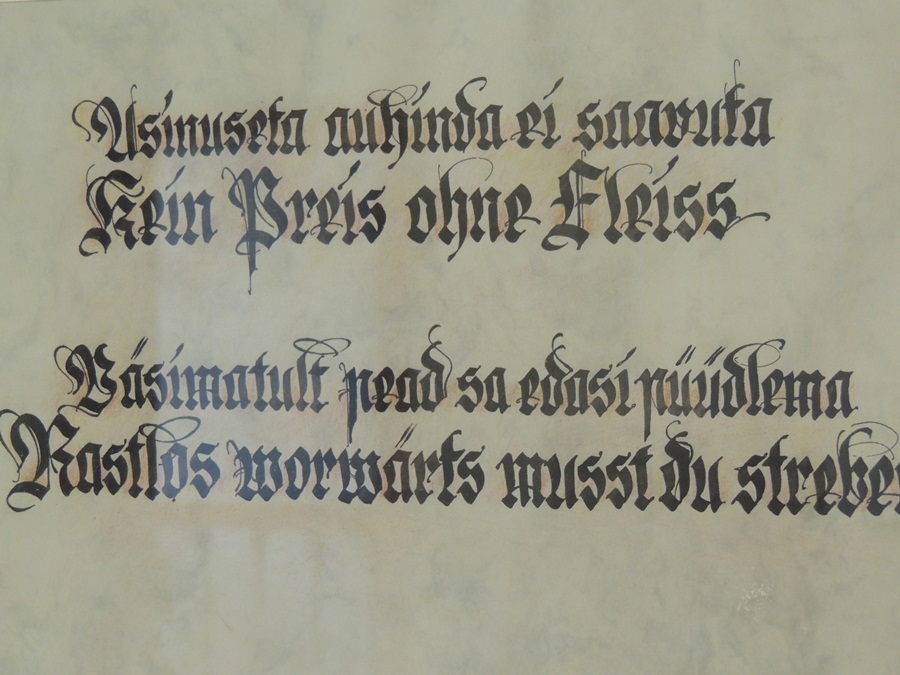 Usinuseta auhinda ei saavuta
Kein Preis ohne Fleiss
Väsimatult pead sa edasi püüdlema
Rastlos worwärts musst du streben